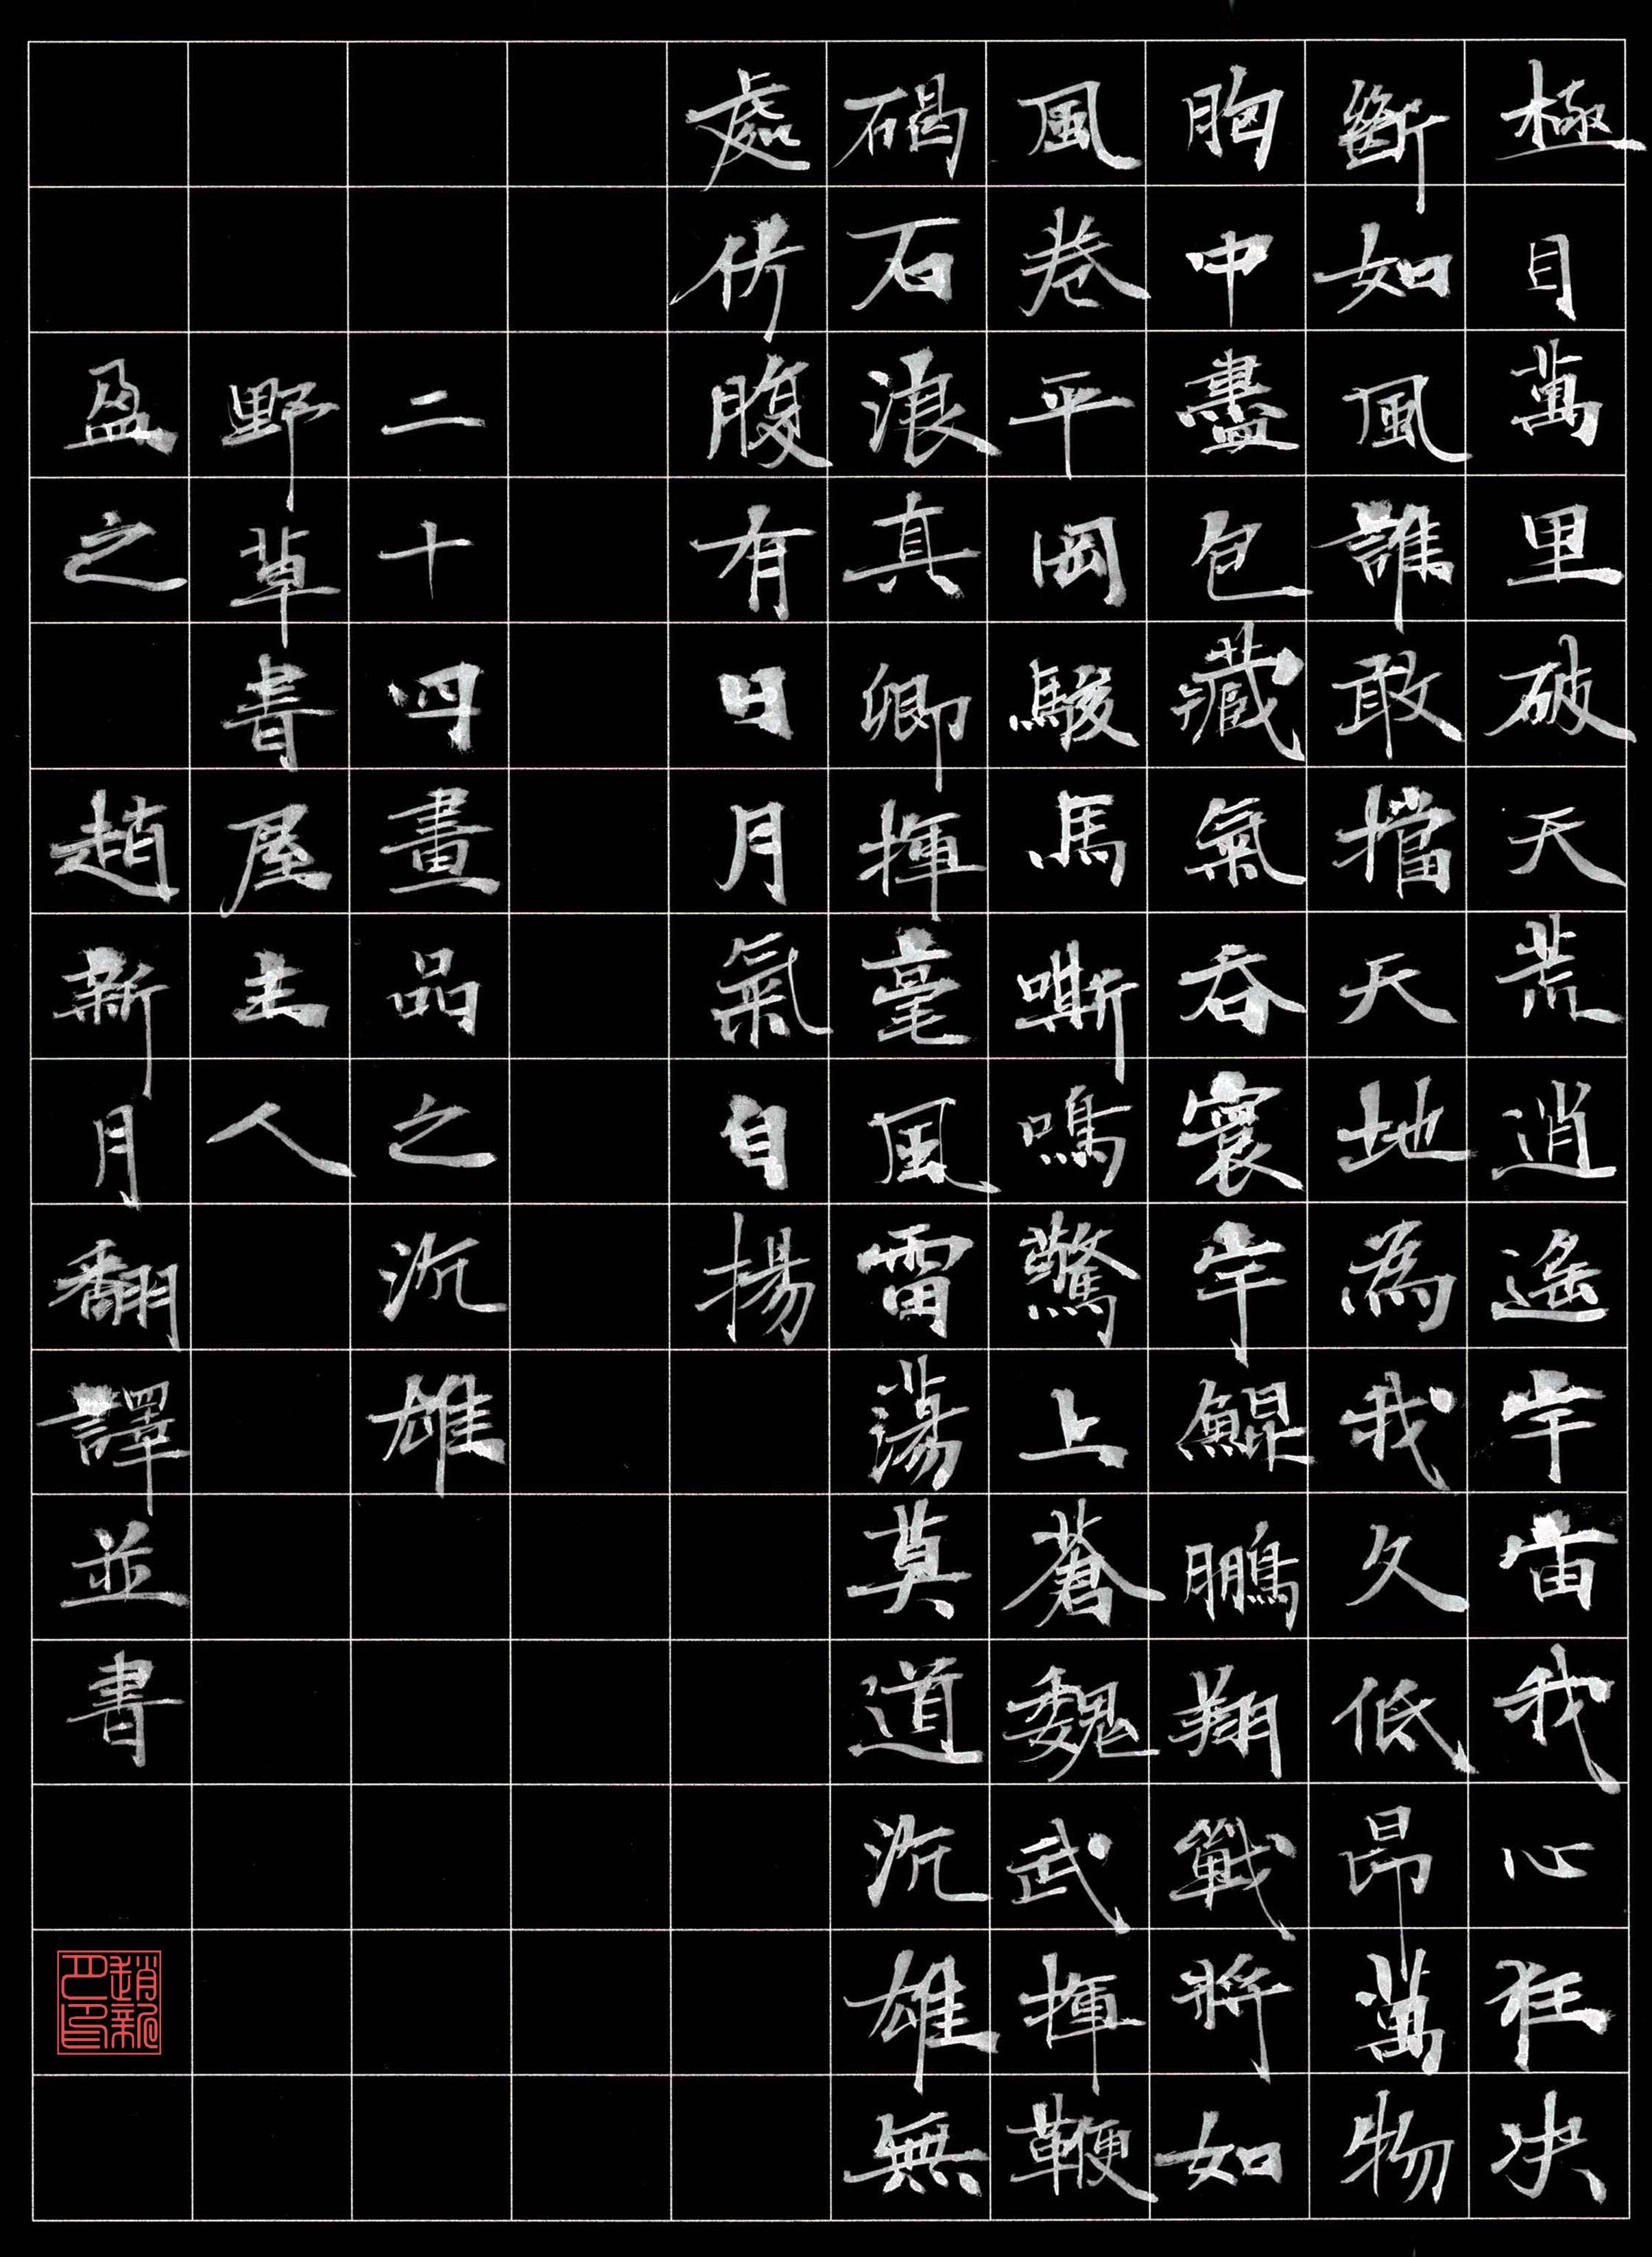 極目萬里破天荒逍遙宇宙我心狂決
斷如風誰敢擋天地為我久低昂萬物
胸中盡包藏氣吞寰宇鯤鵬翔戰將如
風卷平岡駿馬嘶鳴驚上蒼魏武揮鞭
碣石浪真卿揮毫風雷蕩莫道沉雄無
處仿腹有日月氣自揚
二十四畫品之沉雄
野草書屋主人
盈之趙新月翻譯並書
趙新月印